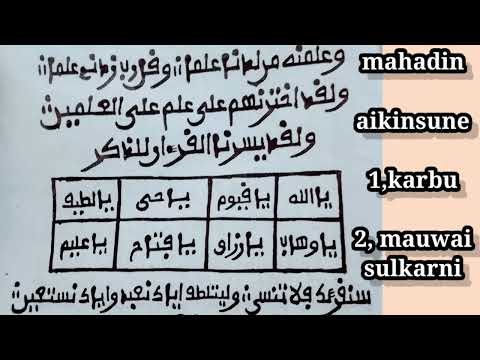 وعلمنه من لدنا علما وقل رب زدني علما
ولقد اخترنهم على علم على العلمين
ولقد يسرنا القرءان للذكر
يا لطيف يا حى يا قيوم يا الله
يا عليم يا فتاح يا رزاق يا وهاب
سنقرئك فلا تنسى وليتلطف إياك نعبد وإياك نستعين
mahadin
aikinsune
1,karbu
2, mauwai
sulkarni